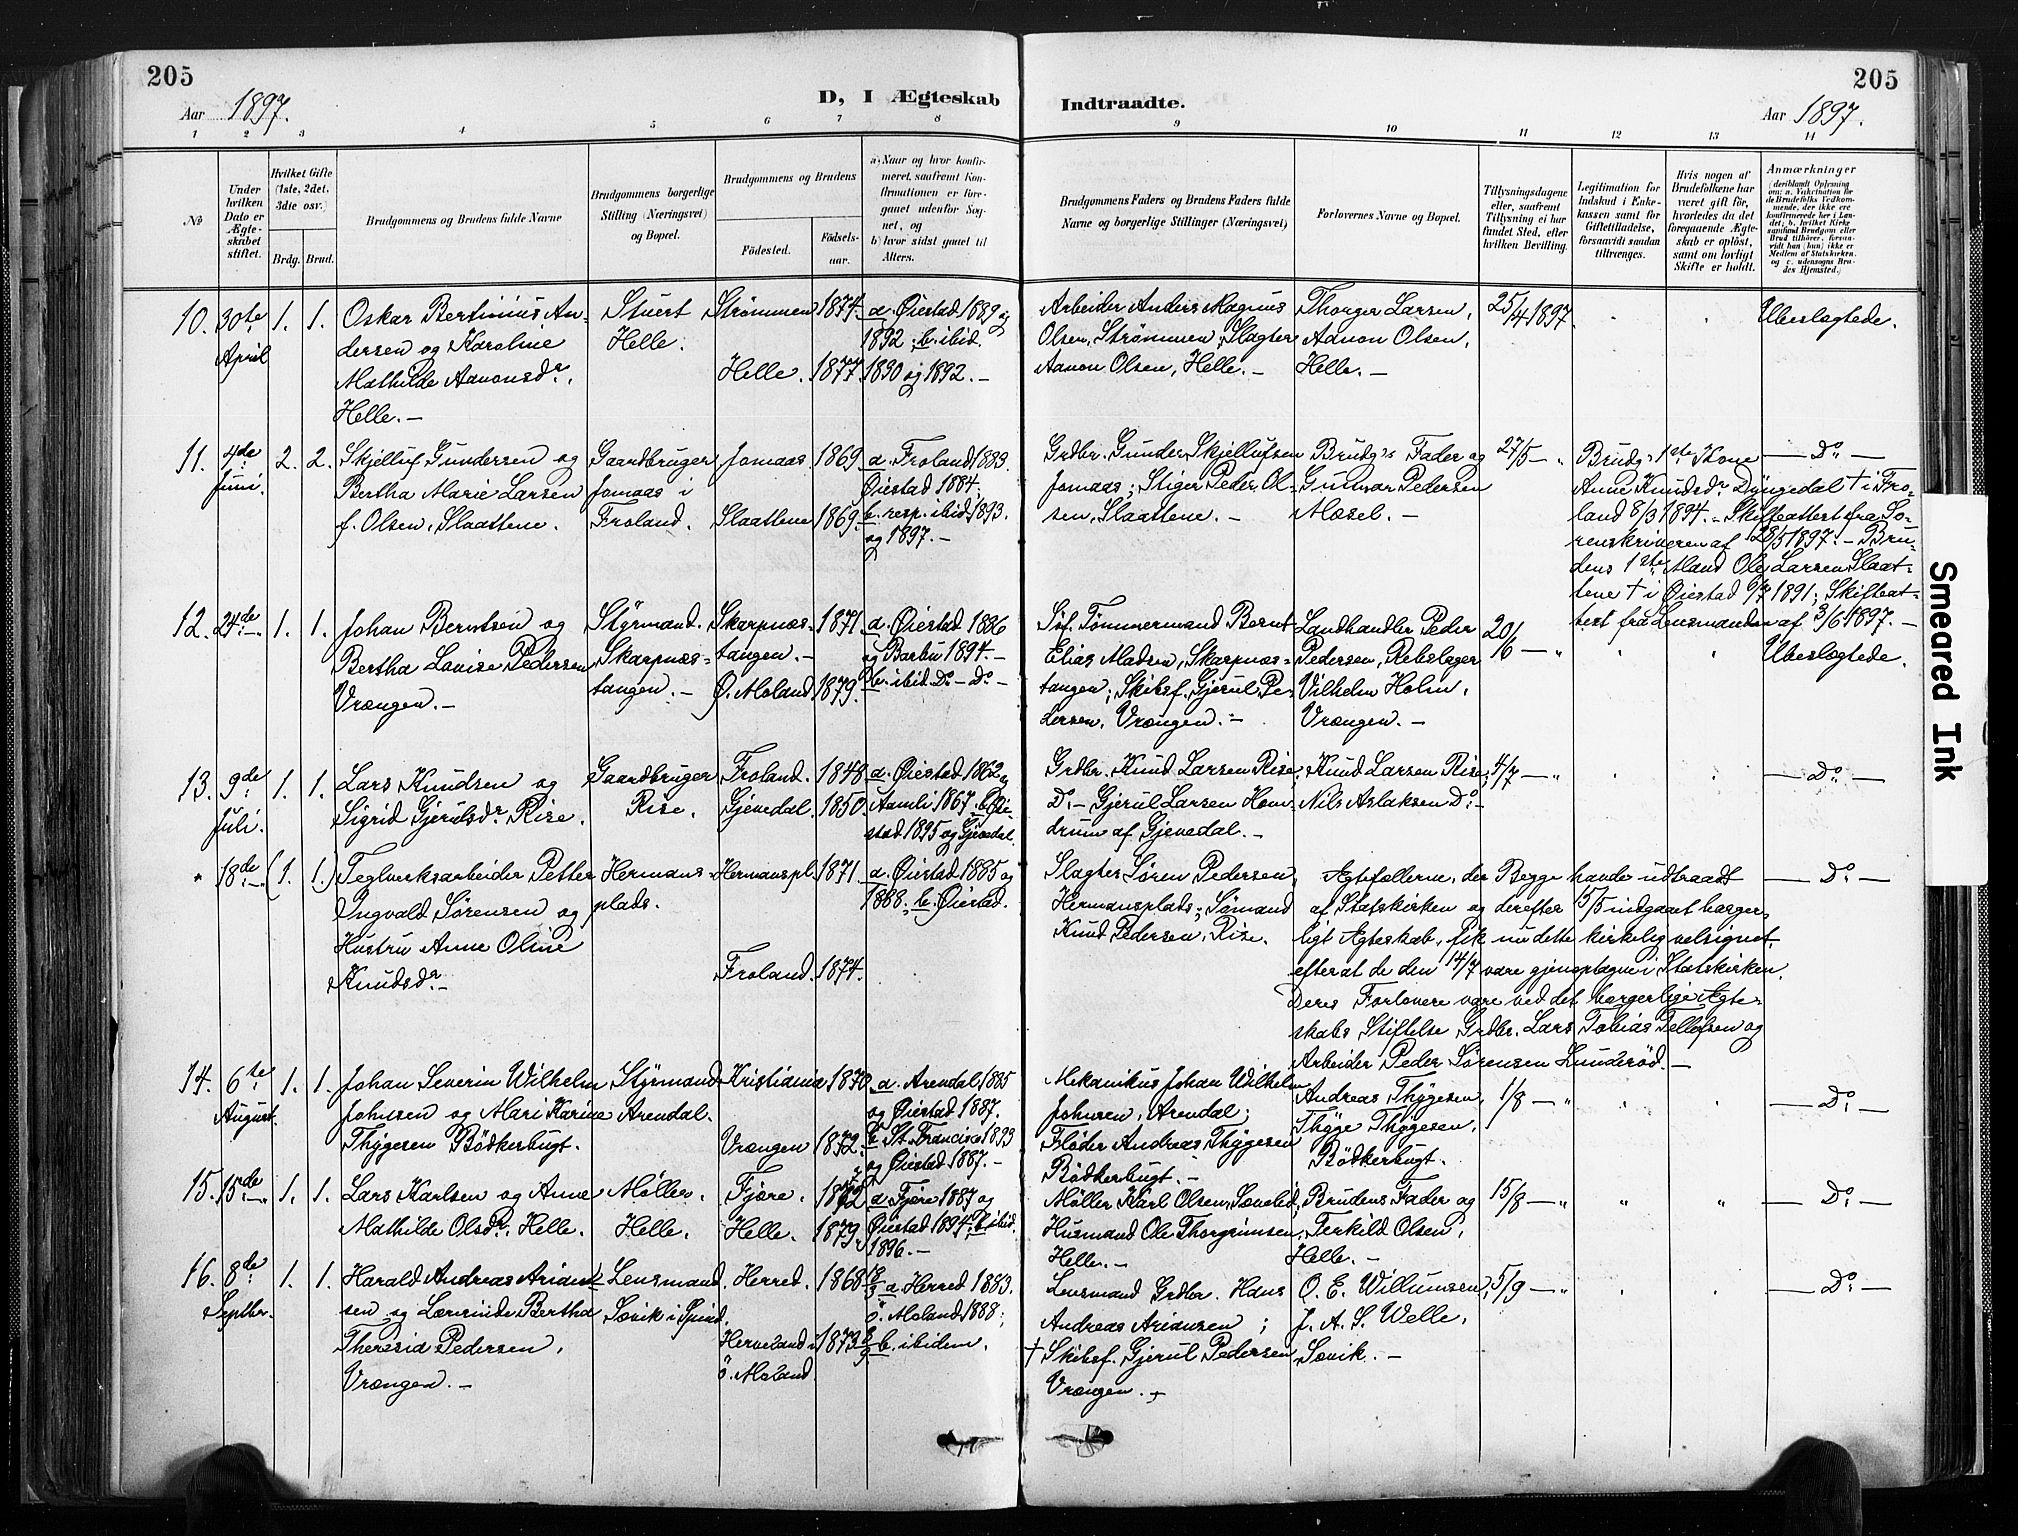 205
205
Aar 1897.
D, I Ægteskab
Indtraadte.
Aar 1897.
1 2 3 4 5 6 7 8 9 10 11 12 13 14
№
Under hvilken Dato er Ægteskabet stiftet.
Hvilket Gifte (1ste, 2det, 3die osv.)
Brdg. Brud.
Brudgommens og Brudens fulde Navne
Brudgommens borgerlige Stilling (Næringsvei) og Bopæl.
Brudgommens og Brudens
Födested.
Födselsaar.
a) Naar og hvor konfirmeret, saafremt Konfirmationen er foregaaet udenfor Sognet, og
b) hvor sidst gaaet til Alters.
Brudgommens Faders og Brudens Faders fulde Navne og borgerlige Stillinger (Næringsvei)
Forlovernes Navne og Bopæl.
Tillysningsdagene eller, saafremt Tillysning ei har fundet Sted, efter hvilken Bevilling.
Legitimation for Indskud i Enkekassen samt for Giftetilladelse, forsaavidt saadan tiltrænges.
Hvis nogen af Brudefolkene har været gift før, hvorledes da det foregaaende Ægteskab er oplöst, samt om lovligt Skifte er holdt.
Anmærkninger
(deriblandt Oplysning om: a. Vakcination for de Brudefolks Vedkommende, der ikke ere konfirmerede her i Landet; b. hvilket Kirkesamfund Brudgom eller Brud tilhörer, forsaavidt han (hun) ikke er Medlem af Statskirken, og c. udensogns Brudes Hjemsted.)
10. 30te April 1. 1.
Oskar Bertinius Andersen og Karoline
Mathilde Aanonsdr.,
Helle. —
Stuert
Helle.
Strømmen 1874.
Helle. 1877.
a. Øiestad 1889 og
1892; b. ibid.
1890 og 1892. —
Arbeider Anders Magnus
Olsen, Strømmen; Slagter
Aanon Olsen, Helle. —
Thorger Larsen,
Aanon Olsen,
Helle. —
25/4 1897.
Ubeslægtede.
11. 4de Juni. 2. 2.
Skjelluf Gundersen og
Bertha Marie Larsen
f. Olsen, Slaattene.
Gaardbruger
Jomaas i
Froland.
Jomaas 1869
Slaattene 1869
a. Froland 1883.
Øiestad 1884.
b. resp. ibid. 1893.
og 1897. —
Grdbr. Gunder Skjellufsen
Jomaas; Stiger Peder Olsen, Slaattene. —
Brudg.s Fader og
Gunnar Pedersen
Mæsel. —
27/5 — „
Brudg.s 1ste Kone
Anne Knudsdr. Dyngedal † i Froland 8/3 1894. — Skifteattest fra Sorenskriveren af 28/5 1897. — Brudens 1ste Mand Ole Larsen Slaattene † i Øiestad 6/7 1891; Skifteattest fra Lensmanden af 3/6 1897. —
— Do. —
12. 24de — 1. 1.
Johan Berntsen og
Bertha Lovise Pedersen
Vrængen. —
Styrmand.
Skarpnæstangen. —
Skarpnæstangen. — 1871.
Ø. Moland 1879.
a. Øiestad 1886
og Barbu 1894. —
b. ibid. Do — Do —
Søf. Tømmermand Bernt
Elias Madsen, Skarpnæstangen; Skibsf. Gjerul Pedersen, Vrængen. —
Landhandler Peder
Pedersen, Rebslager
Vilhelm Holm,
Vrængen. —
20/6 — „
Ubeslægtede.
13. 9de Juli. 1. 1.
Lars Knudsen og
Sigrid Gjerulsdr. Rise.
Gaardbruger
Rise.
Froland. 1848.
Gjevedal. 1850.
a. Øiestad 1862 og
Aamli 1867. b. Øiestad 1895 og Gjevedal.
Grdbr. Knud Larsen Rise;
Do. — Gjerul Larsen Homdrum af Gjevedal. —
Knud Larsen Rise;
Nils Aslaksen Do. —
4/7 — „
— Do. —
18de — (1. 1.)
Teglverksarbeider Petter
Ingvald Sørensen og
Hustru Anne Oline
Knudsdr. —
Hermansplads.
Hermanspl. 1871.
Froland. 1874.
a. Øiestad 1885 og
1888; b. Øiestad.
Slagter Søren Pedersen,
Hermansplads; Sømand
Knud Pedersen, Rise.
Ægtefællerne, der Begge havde udtraadt
af Statskirken og derefter 15/5 indgaaet borgerligt Ægteskab, fik nu dette kirkelig velsignet,
efterat de den 14/7 vare gjenoptagne i Statskirken.
Deres Forlovere vare ved det borgerlige Ægteskabs Stiftelse Grdbr. Lars Tobias Tellefsen og
Arbeider Peder Sørensen Lunderød. —
— Do. —
14. 6te August. 1. 1.
Johan Severin Wilhelm
Johnsen og Mari Karine
Thygesen Bödkerbugt.
Styrmand
Arendal.
Kristiania 1870
Vrængen 1872.
a. Arendal 1885
og Øiestad 1887.
b. St. Francisco 1893
og Øiestad 1887. —
Mekanikus Johan Wilhelm
Johnsen, Arendal;
Fløder Andreas Thygesen
Bödkerbugt. —
Andreas Thygesen,
Thyge Thygesen,
Bödkerbugt.
1/8 — „
— Do. —
15. 15de — 1. 1.
Lars Karlsen og Anne
Mathilde Olsdr., Helle.
Møller.
Helle.
Fjære. 1872
Helle. 1879
a. Fjære 1887 og
Øiestad 1894; b. ibid.
1896. —
Møller Karl Olsen,
Husmand Ole Thorgrimsen,
Helle. —
Brudens Fader og
Terkild Olsen,
Helle. —
15/8 — „
— Do. —
16. 8de Septbr. 1. 1.
Harald Andreas Ariansen og Lærerinde Bertha
Theresia Pedersen,
Vrængen. —
Lensmand.
Søvik i Spind.
Herred. 1868
Herveland i 1873
ö. Moland.
a. Herred 1883.
ö. Moland 1888;
b. ibidem.
Lensmand Grdbr. Hans
Andreas Ariansen;
† Skibsf. Gjerul Pedersen,
Vrængen. —
O. E. Willumsen,
J. A. S. Welle,
Søvik. —
5/9 — „
— Do. —
Smeared Ink